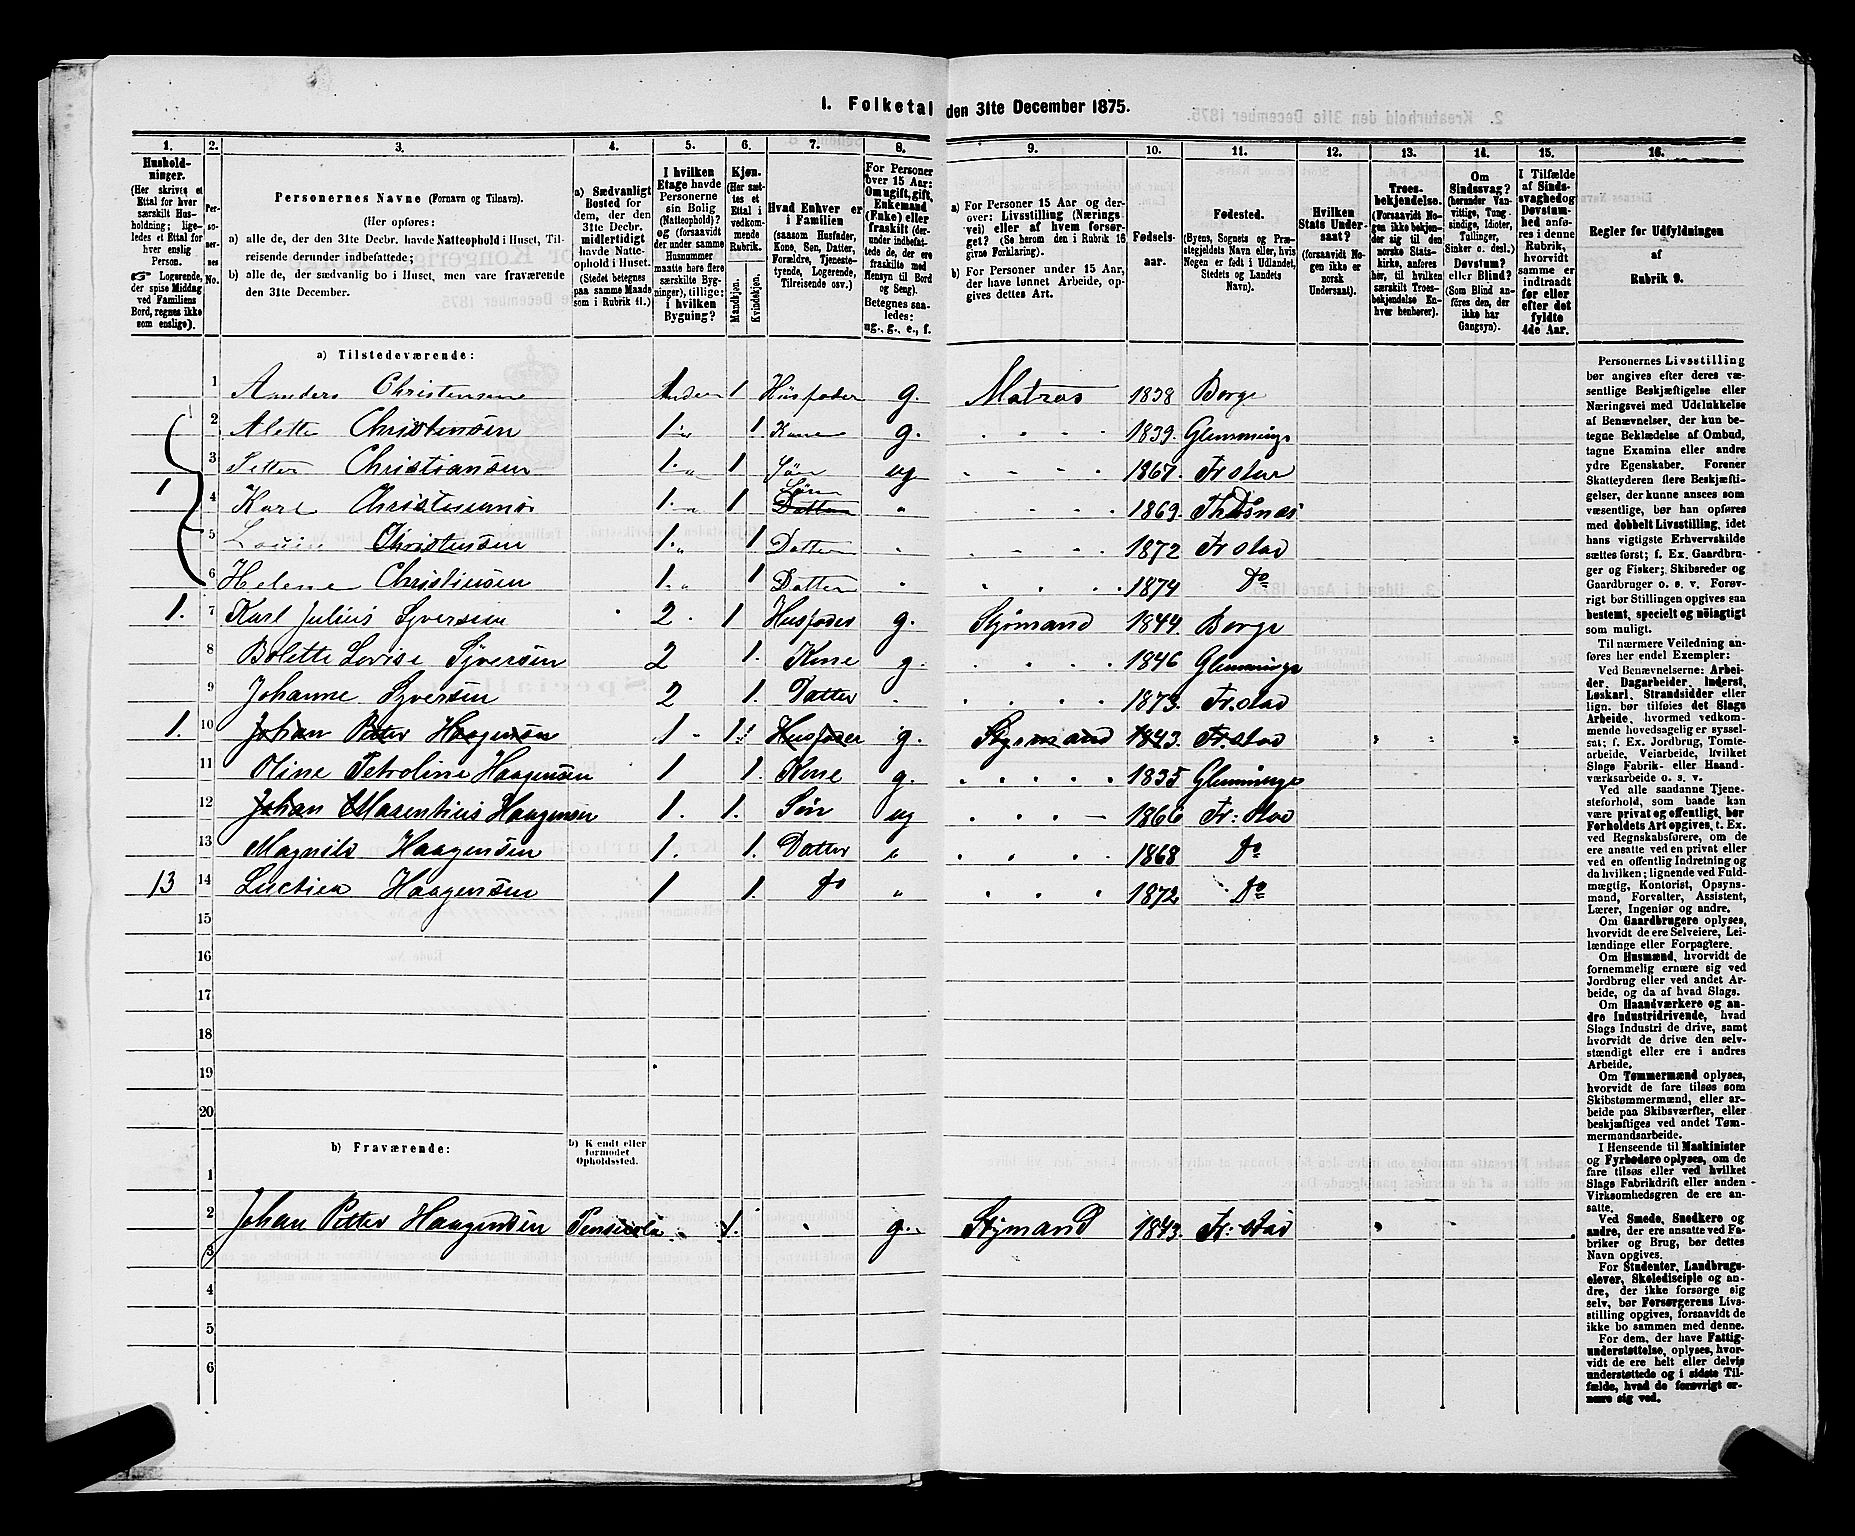 1. Folketal den 31te December 1875.
1. 2. 3. 4. 5. 6. 7. 8. 9. 10. 11. 12. 13. 14. 15. 16.
Husholdninger. (Her skrives et Ettal for hver særskilt Husholdning; ligeledes et Ettal for hver enslig Person. Logerende, der spise Middag ved Familiens Bord, regnes ikke som enslige).
Personernes No.
Personernes Navne (Fornavn og Tilnavn).
(Her opføres:
a) alle de, der den 31te Decbr. havde Natteophold i Huset, Tilreisende derunder indbefattede;
b) alle de, der sædvanlig bo i Huset, men vare fraværende den 31te December.
a) Sædvanligt Bosted for dem, der den 31te Decbr. midlertidigt havde Natteophold i Huset. (Stedet betegnes paa samme Maade som i Rubrik 11.)
I hvilken Etage havde Personerne sin Bolig (Natteophold)? og (forsaavidt der under samme Husnummer maatte høre flere særskilte Bygninger), tillige: i hvilken Bygning?
Kjøn. (Her sættes et Ettal i vedkommende Rubrik.
Mandkjøn.
Kvindekjøn.
Hvad Enhver er i Familien (saasom Husfader, Kone, Søn, Datter, Forældre, Tjenestetyende, Logerende, Tilreisende osv.)
For Personer over 15 Aar: Om ugift, gift, Enkemand (Enke) eller fraskilt (derunder indbefattede de, der ere fraskilte med Hensyn til Bord og Seng). Betegnes saaledes: ug., g., e., f.
a) For Personer 15 Aar og derover: Livsstilling (Næringsvei) eller af hvem forsørget? (Se herom den i Rubrik 16 givne Forklaring).
b) For Personer under 15 Aar, der have lønnet Arbeide, opgives dettes Art.
Fødselsaar.
Fødested.
(Byens, Sognets og Præstegjeldets Navn eller, hvis Nogen er født i Udlandet, Stedets og Landets Navn).
Hvilken Stats Undersaat? (forsaavidt Nogen ikke er norsk Undersaat).
Troesbekjendelse. (Forsaavidt Nogen ikke bekjender sig til den norske Statskirke, anføres her, til hvilken særskilt Troesbekjendelse Enhver henhører).
Om Sindssvag? (herunder Vanvittige, Tungsindige, Idioter, Tullinger, Sinker o. desl.) Døvstum? eller Blind? (Som Blind anføres den, der ikke har Gangsyn).
I Tilfælde af Sindssvaghed og Døvstumhed anføres i denne Rubrik, hvorvidt samme er indtraadt før eller efter det fyldte 4de Aar.
Regler for Udfyldningen af Rubrik 9.
a) Tilstedeværende:
1 Anders Christensen 1 1 Husfader g. Matros 1838 Borge
2 Alette Christensen 1 " 1. Kone g. 1839. Glemminge
3 Petter Christiansen 1. " 1 Søn ug 1867. Fr.stad
1
4 Karl 1. " 1 Søn Datter " 1869.
5 Christensen 1. " 1 Datter " 1872 Fr.stad
6 Helene Christensen 1. " 1 Datter " 1874 Do
1. 7 Karl Julius Syversen 2. 1 Husfader g. Styrmand 1844. Borge
8 Bolette Lovise Syversen 2 1. Kone g. 1846 Glemminge
9 Johanne Syversen 2 1. Datter 1873. Fr.stad
1. 10 Johan Petter Haagensen 1 1 Husfader g. Styrmand 1843. Fr.stad
11 Oline Petroline Haagensen 1 1. Kone g. 1835 Glemminge
12 Johan Marenthius Haagensen 1. 1. Søn ug 1866 Fr: stad
13 Magnild Haagensen 1. 1. Datter " 1868 Do
13 14 Haagensen 1 1. Do " 1872 Do
15
16
17
18
19
20
b) Fraværende:
b) Kjendt eller formodet Opholdssted.
1
2 Johan Petter Haagensen Pensacola 1. g. Styrmand 1843. Fr: stad
3
4
5
6
Personernes Livsstilling
bør angives efter deres væ-
sentlige Beskjæftigelse eller
Næringsvei med Udelukkelse
af Benævnelser, der kun be-
tegne Beklædelse af Ombud,
tagne Examina eller andre
ydre Egenskaber. Forener
Skatteyderen flere Beskjæfti-
gelser, der kunne ansees som
væsentlige, bør han opføres
med dobbelt Livsstilling, idet
hans vigtigste Erhvervskilde
sættes først; f. Ex. Gaardbru-
ger og Fisker; Skibsreder og
Gaardbruger o. s. v. Forøv-
rigt bør Stillingen opgives saa
bestemt, specielt og nøiagtigt
som muligt.
Til nærmere Veiledning an-
føres her endel Exempler:
Ved Benævnelserne: Arbei-
der, Dagarbeider, Inderst,
Løskarl, Strandsidder eller
lign. bør tilføies det Slags
Arbeide, hvormed vedkom-
mende hovedsagelig er syssel-
sat; f. Ex. Jordbrug, Tomte-
arbeide, Veiarbeide, hvilket
Slags Fabrik- eller Haand-
værksarbeide o. s. v.
Ved alle saadanne Tjene-
steforhold, som baade kan
være privat og offentligt, bør
Forholdets Art opgives, t. Ex.
ved Regnskabsførere, om de
ere ansatte ved en privat eller
ved en offentlig Indretning og
da hvilken; lignende ved Fuld-
mægtig, Kontorist, Opsyns-
mand, Forvalter, Assistent,
Lærer, Ingeniør og andre.
Om Gaardbrugere oplyses,
hvorvidt de ere Selveiere, Lei-
lændinge eller Forpagtere.
Om Husmænd, hvorvidt de
fornemmelig ernære sig ved
Jordbrug eller ved andet Ar-
beide, og da af hvad Slags.
Om Haandværkere og an-
dre Industridrivende, hvad
Slags Industri de drive, samt
hvorvidt de drive den selv-
stændigt eller ere i andres
Arbeide.
Om Tømmermænd oplyses,
hvorvidt de fare tilsøs som
Skibstømmermænd, eller ar-
beide paa Skibsværfter, eller
beskjæftiges ved andet Tøm-
mermandsarbeide.
I Henseende til Maskinister
og Fyrbødere oplyses, om de
fare tilsøs eller ved hvilket
Slags Fabrikdrift eller anden
Virksomhedsgren de ere an-
satte.
Ved Smede, Snedkere og
andre, der ere ansatte ved Fa-
briker og Brug, bør dettes
Navn opgives.
For Studenter, Landbrugs-
elever, Skoledisciple og an-
dre, der ikke forsørge sig
selv, bør Forsørgerens Livs-
stilling opgives, forsaavidt de
ikke bo sammen med denne.
For dem, der have Fattig-
understøttelse, oplyses, hvor-
vidt de ere helt eller delvis
understøttede og i sidste Til-
fælde, hvad de forøvrigt er-
nære sig ved.